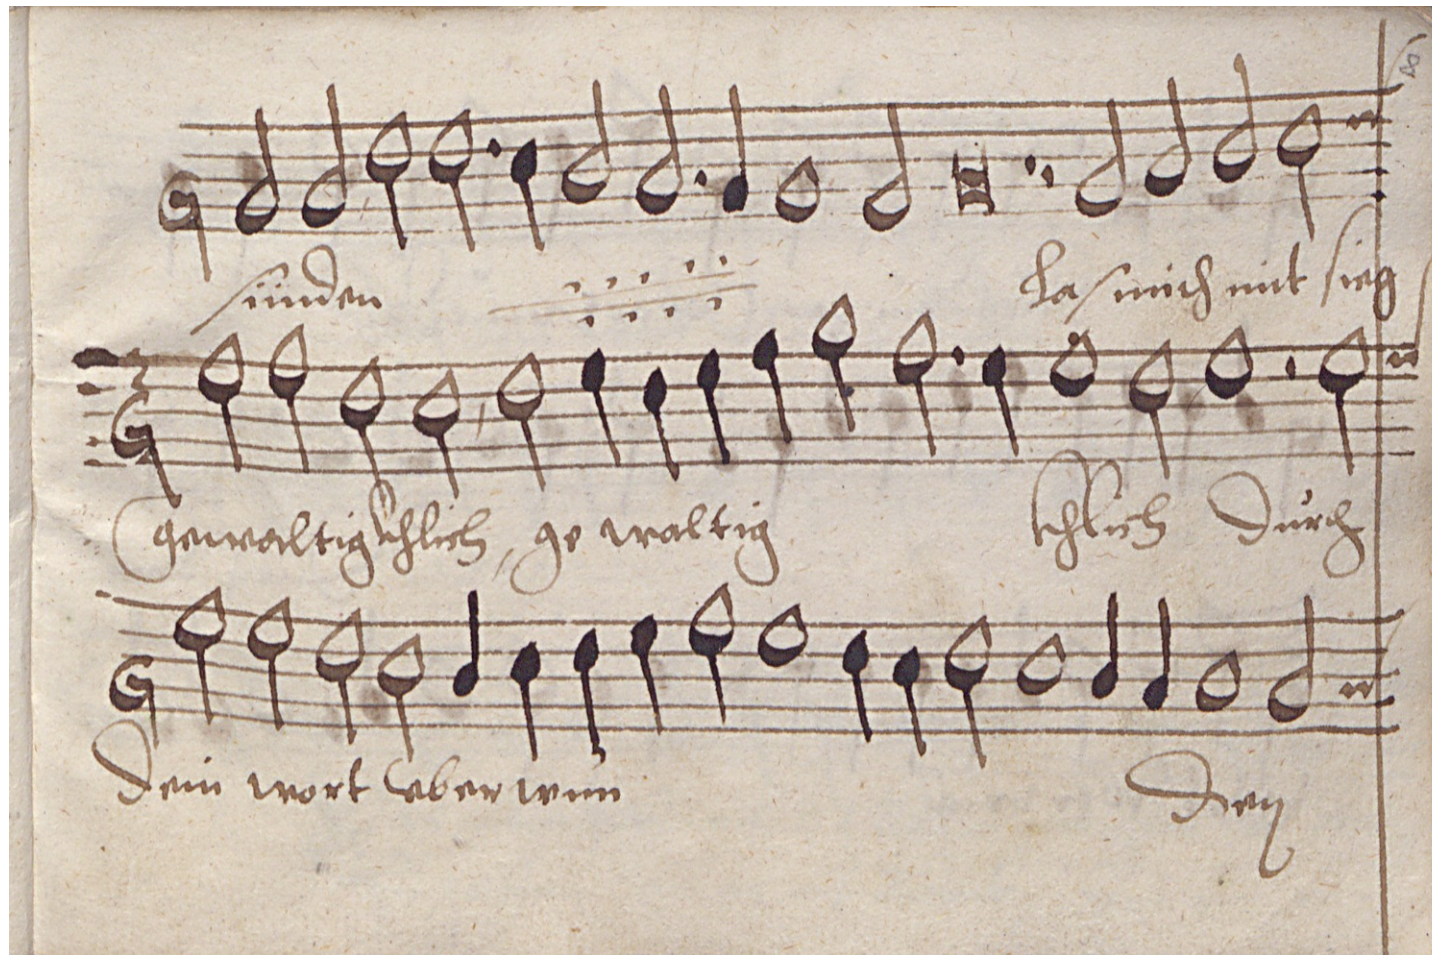 sünden las mich mit sieg
gewaltigchlich, ge waltig chlich durch
dein wort uberwün den